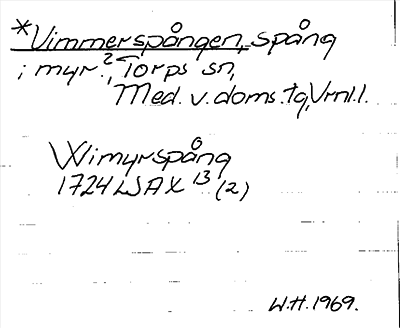 *Vimmerspången, spång
i myr?, Torps sn,
Med. v. doms. tg, Vrnl. l.
Wimyrspång
1724 LSA X 13 (2)
W.H. 1969.